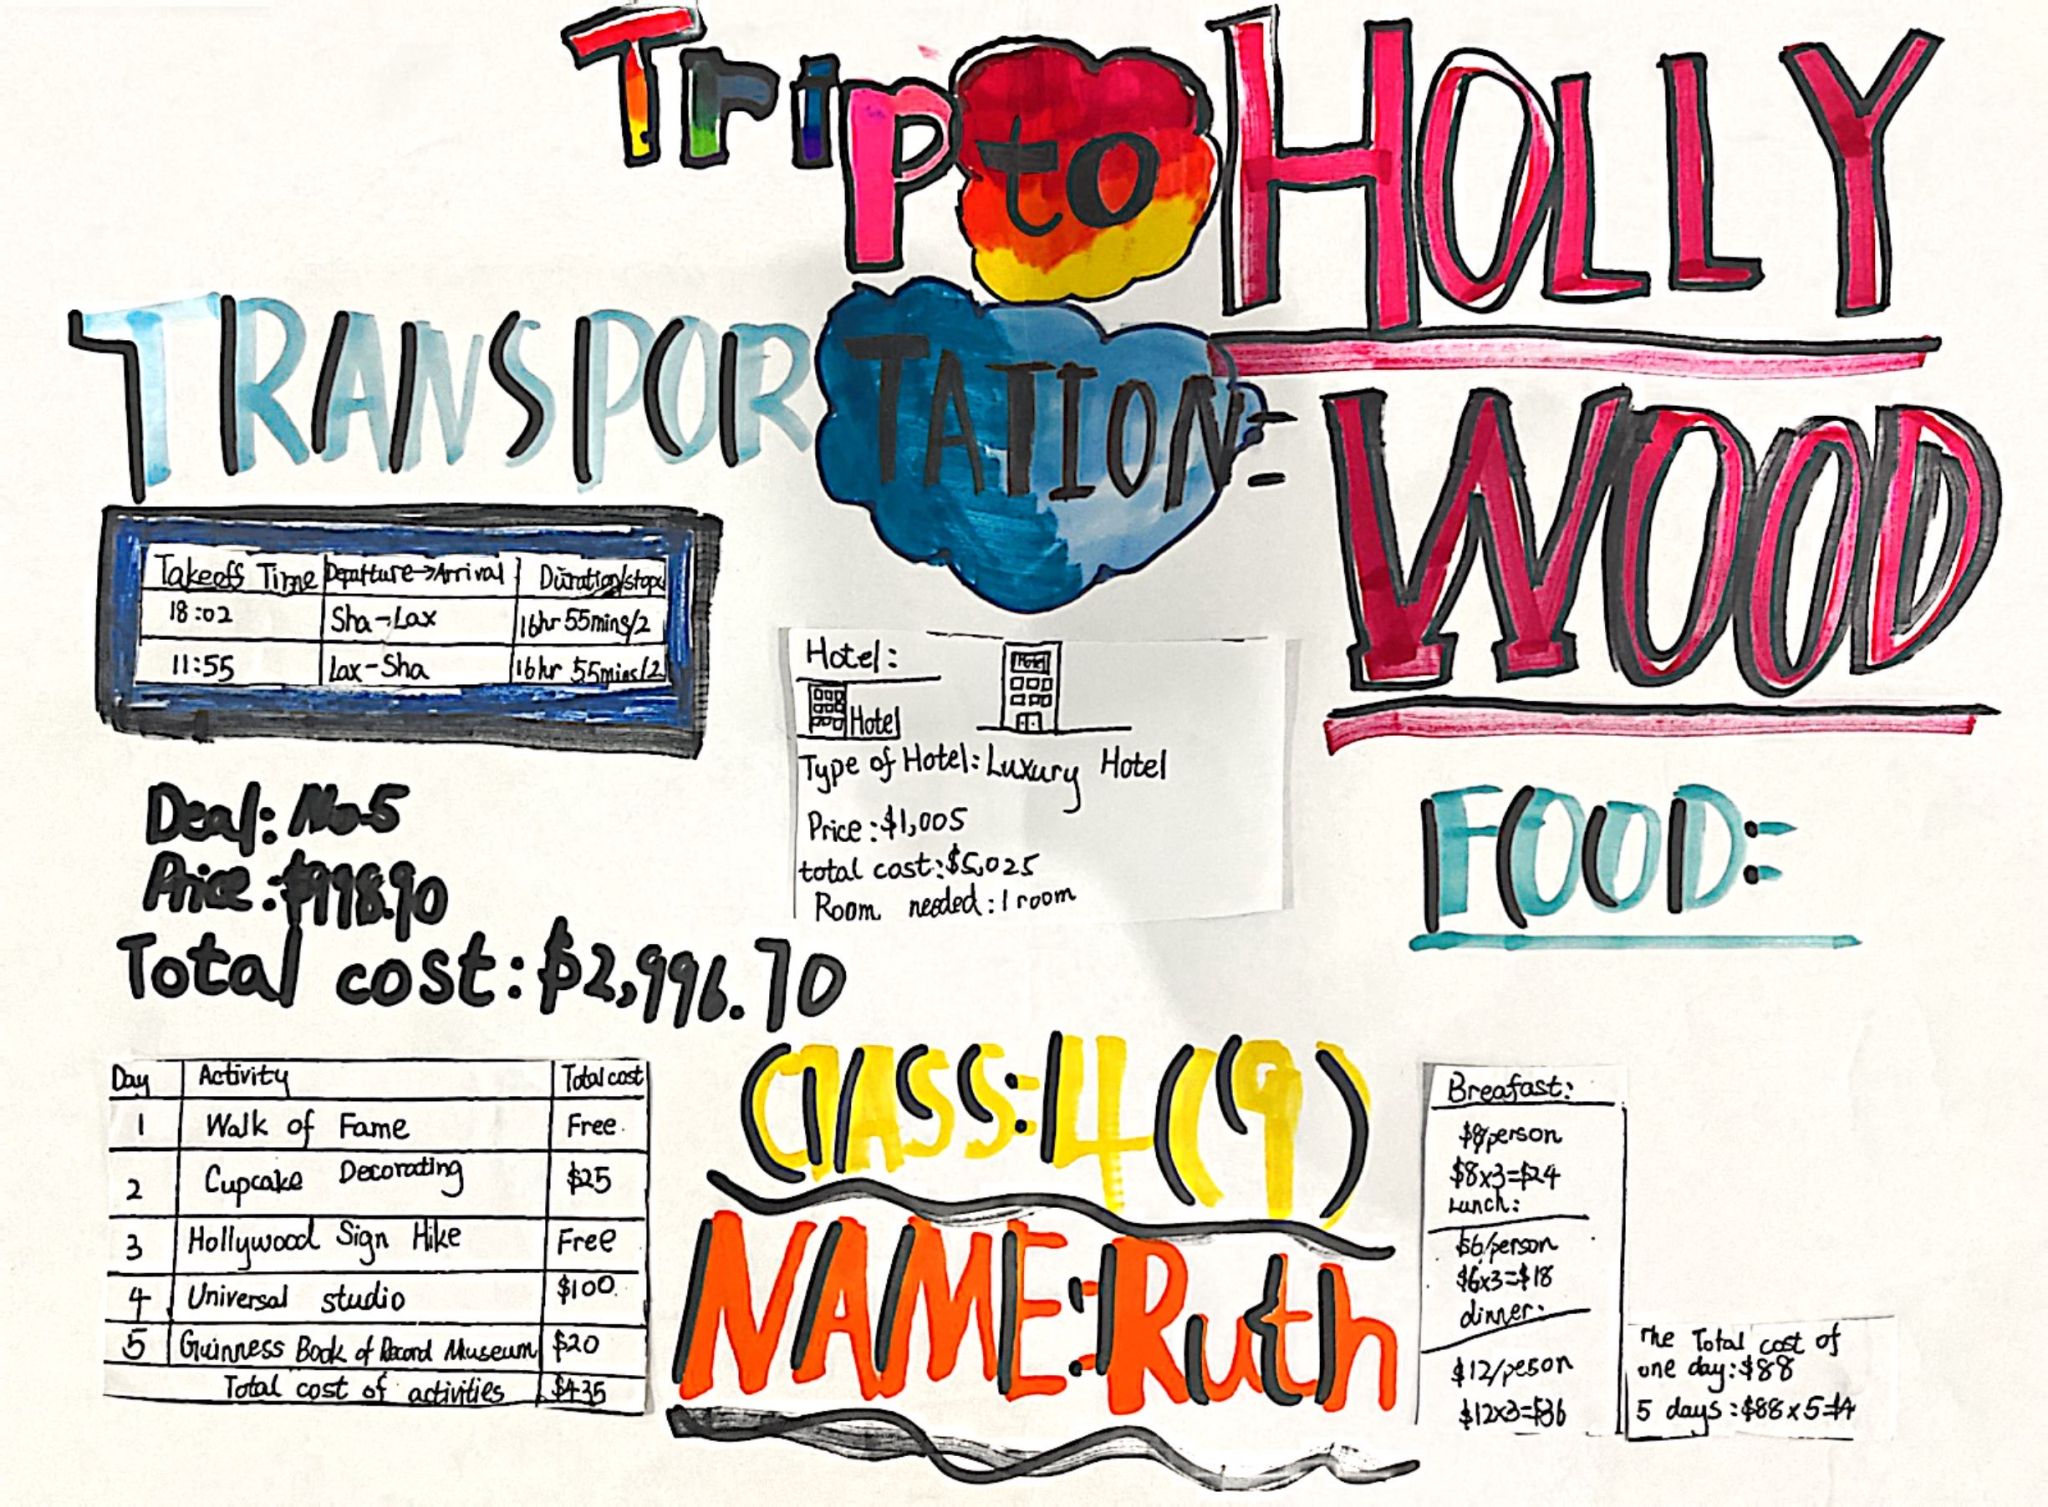 Trip to HOLLY
WOOD
TRANSPORTATION:
Takeoff Time Departure→Arrival Duration/stops
18:02 Sha-Lax 16hr 55mins/2
11:55 Lax-Sha 16hr 55mins/2
Deal: No.5
Price: $998.90
Total cost: $2,996.70
Hotel:
Hotel
Hotel
Type of Hotel: Luxury Hotel
Price: $1,005
total cost: $5,025
Room needed: 1 room
FOOD:
Day Activity Total cost
1 Walk of Fame Free
2 Cupcake Decorating $25
3 Hollywood Sign Hike Free
4 Universal studio $100
5 Guinness Book of Record Museum $20
Total cost of activities $435
CLASS: 4(9)
NAME: Ruth
Breafast:
$8/person
$8x3=$24
Lunch:
$6/person
$6x3=$18
dinner:
$12/peson
$12x3=$36
The Total cost of
one day: $88
5 days: $88x5=$4